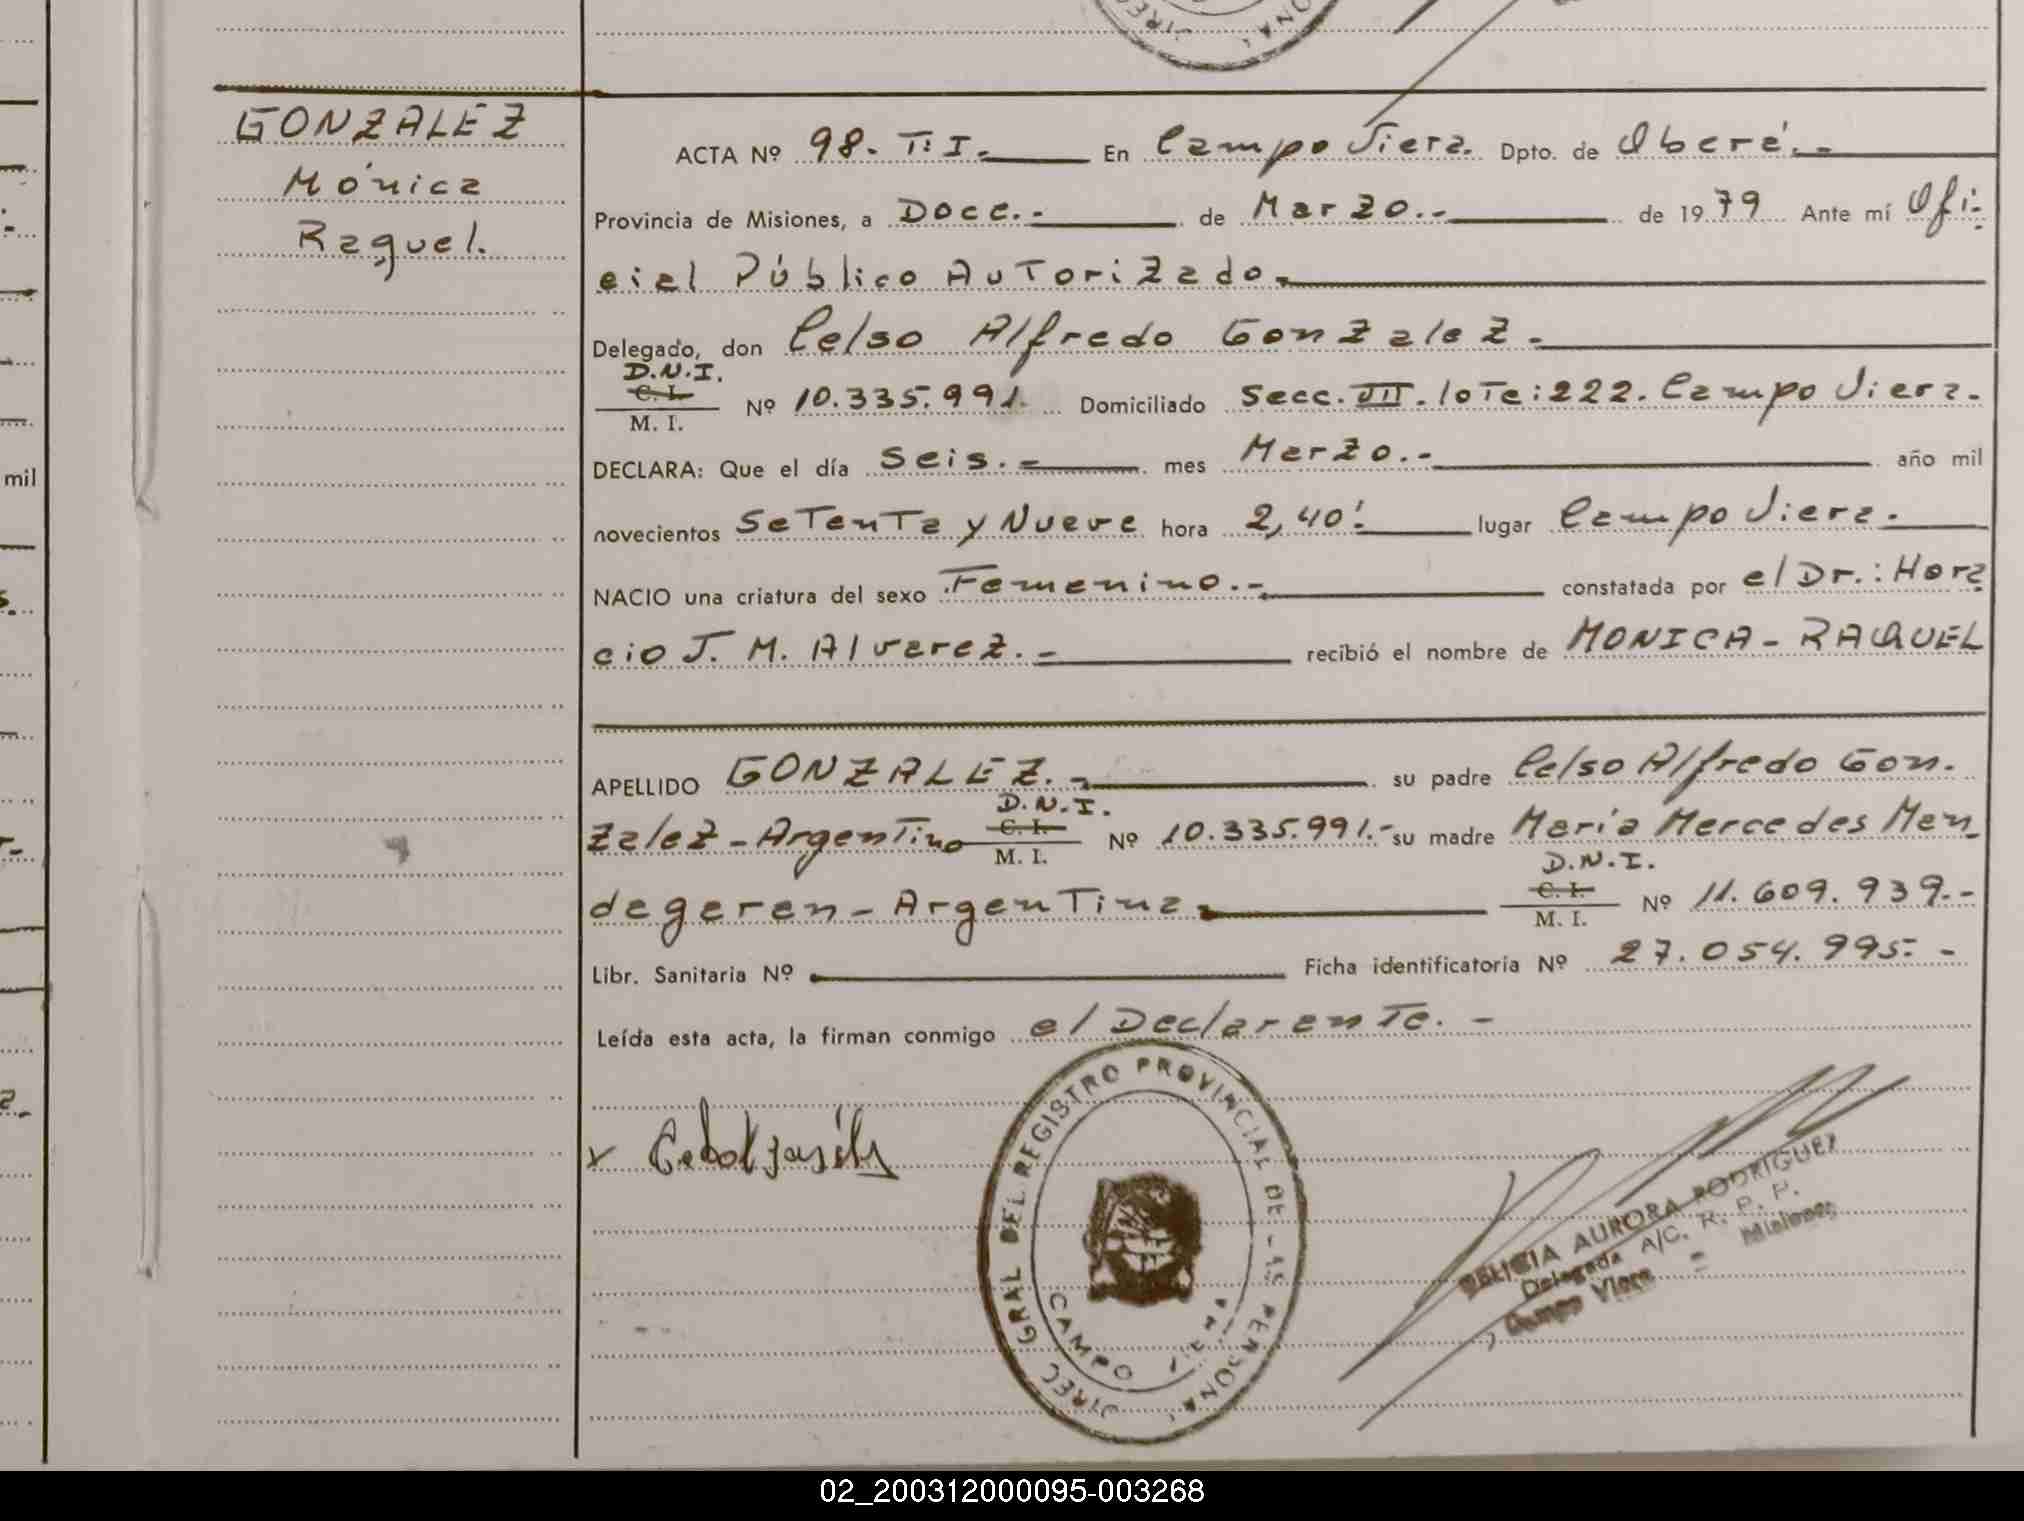 GONZALEZ
Mónica
Raquel.
mil
ACTA Nº 98. T: I. En Campo Viera. Dpto. de Oberá.-
Provincia de Misiones, a Doce.- de Marzo.- de 1979 Ante mí Ofi-
cial Público Autorizado.
Delegado, don Celso Alfredo Gonzalez.
D.N.I.
C. I.
M. I. Nº 10.335.991. Domiciliado Secc. VII. lote: 222. Campo Viera.
DECLARA: Que el día Seis.- mes Marzo.- año mil
novecientos Setenta y Nueve hora 2,40! lugar Campo Viera.
NACIO una criatura del sexo Femenino.- constatada por el Dr.: Hora
cio J. M. Alvarez.- recibió el nombre de MONICA - RAQUEL
APELLIDO GONZALEZ.- su padre Celso Alfredo Gon.
D.N.I.
zalez - Argentino C. I. M. I. Nº 10.335.991.- su madre María Mercedes Men
D.N.I.
degeren - Argentina. C. I. M. I. Nº 11.609.939.-
Libr. Sanitaria Nº Ficha identificatoria Nº 27.054.995.-
Leída esta acta, la firman conmigo el Declarante.-
x
DIREC GRAL DEL REGISTRO PROVINCIAL DE LAS PERSONAS
CAMPO VIERA
DELICIA AURORA RODRIGUEZ
Delegada A/C. R. P. P.
Campo Viera - Misiones
02_200312000095-003268